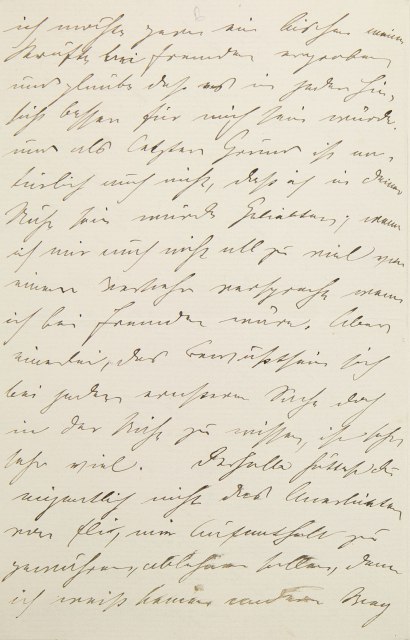 6
ich möchte gern ein bischen meine
Kräfte bei Fremden erproben
und glaube dass es in jeder Hin-
sicht besser für mich sein würde.
und als letzter Grund ist na-
türlich auch nicht, dass ich in Deiner
Nähe sein würde Geliebter, wenn
ich mir auch nicht all zu viel von
einem Verkehr verspreche wenn
ich bei Fremden wäre. Aber
einerlei, das Bewusstsein sich
bei jeder ernsteren Sache doch
in der Nähe zu wissen, ist sehr
sehr viel. Deshalb hättest du
eigentlich nicht das Anerbieten
von mir Aufenthalt zu
gewähren, ablehnen sollen, denn
ich weiss keinen andern Weg